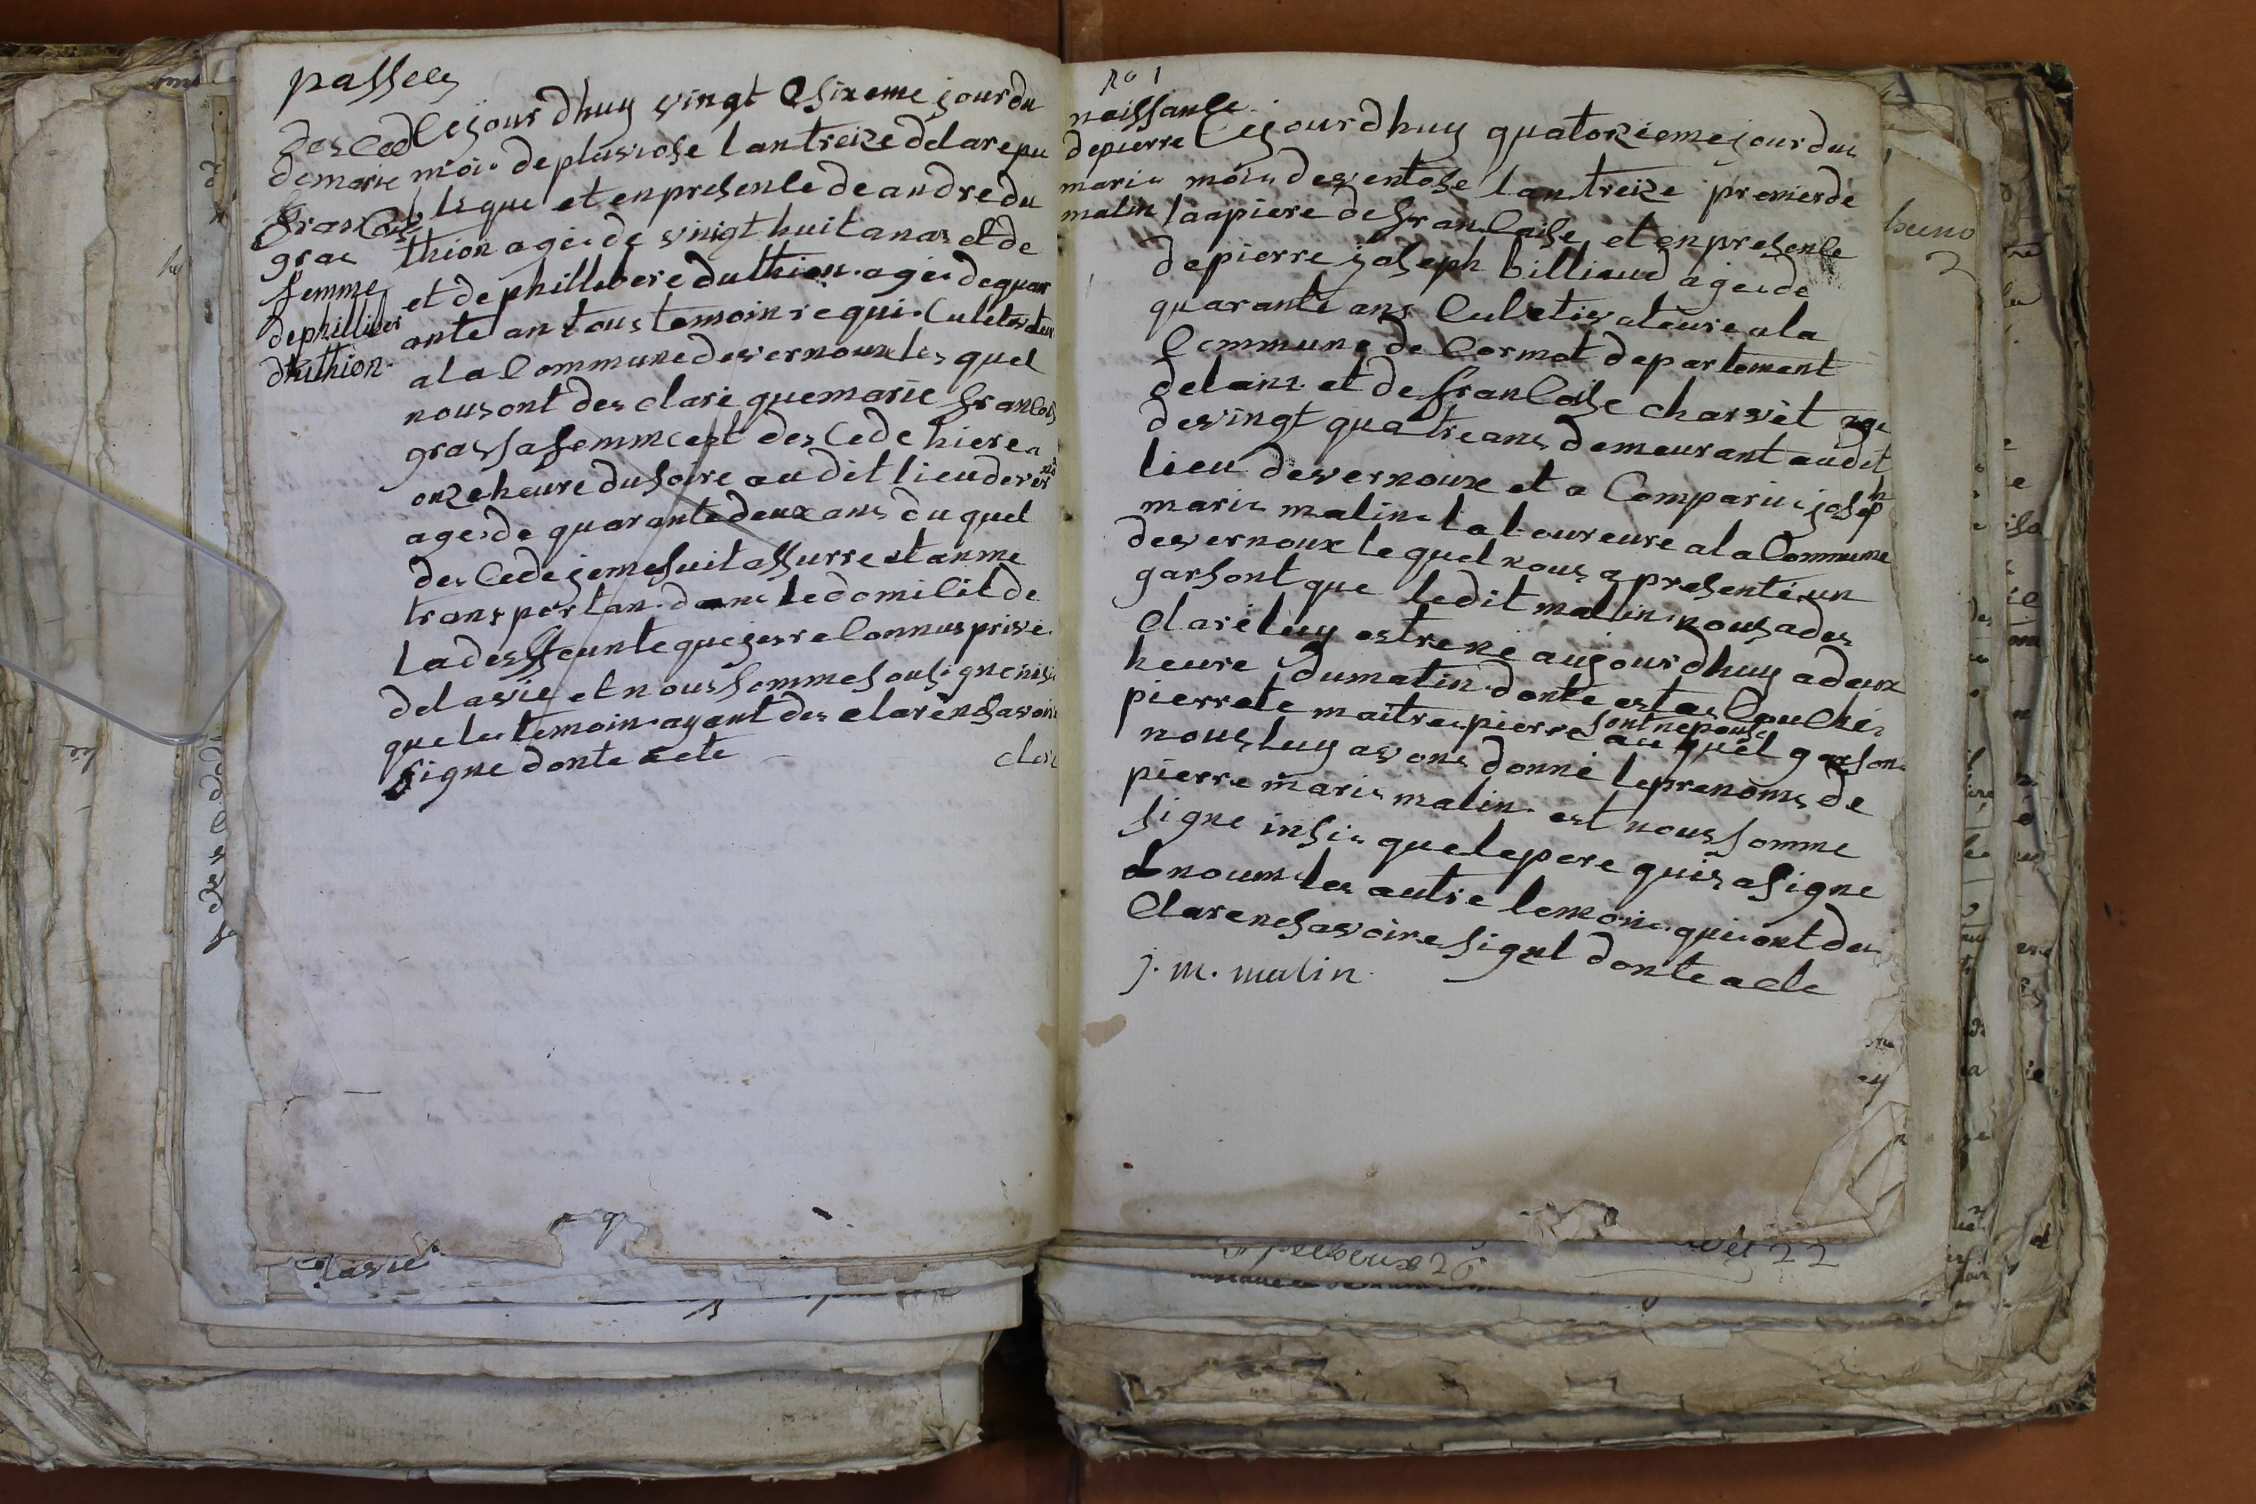 passees
desced
demarie
francoise
gras
femme
dephiliber
duthion
Cejourdhuy vingt sixeme jour du
mois de plusviose lantreize delarepu
blique et enpresence de andre du
thion agé de vingt huit anas et de
et de phillebere duthion age de quar
ante ans tous temoin requi. Culetivateur
ala Commune devernoux les quel
nous ont des claré que marie francois
gras sa femme est des Cede hiere a
onze heure du soire au dit lieu de ver
age de quarante deux ans du quel
des Cede je me suit assurre et an me
transportan dans le domilit de
la desffeunte que jes reconnus privé
de la vie et nous somme sousigne insi
que les temoin ayant des claré ne savoire
signe donte acte
No 1
naissance
de pierre
marie
malin
Cejourdhuy quatorzieme jour du
mois de ventose lantreize premier de
lanpiere de francaise et en presence
de pierre joseph billiaud age de
quarante ans Culvetivateure a la
Commune de Cormot departement
delain et de francoise charvet age
de vingt quatre ans demeurant au dit
lieu de vernoux et a Comparu joseph
marie malin laboureure a la Commune
de vernoux le quel nous a presenté un
garsont que ledit malin nous a des
claré luy estre né aujourdhuy a deux
heure du matin donte est a Couchée
pierrete maitrepierre sont nepouse au quel garson
nous luy avons donné le prenoms de
pierre marie malin est nous somme
signe insi que le pere quis a signe
et noum les autre temoin qui ont des
clare ne savoire signe donte acte
j. m. malin